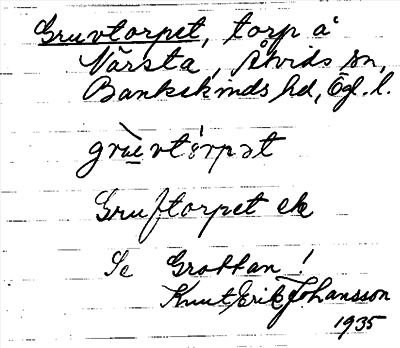 Gruvtorpet, torp å
Närsta, Åtvids sn,
Bankekinds hd, Ögl. l.
Gruftorpet ek
Se Grottan!
Knut Erik Johansson
1935